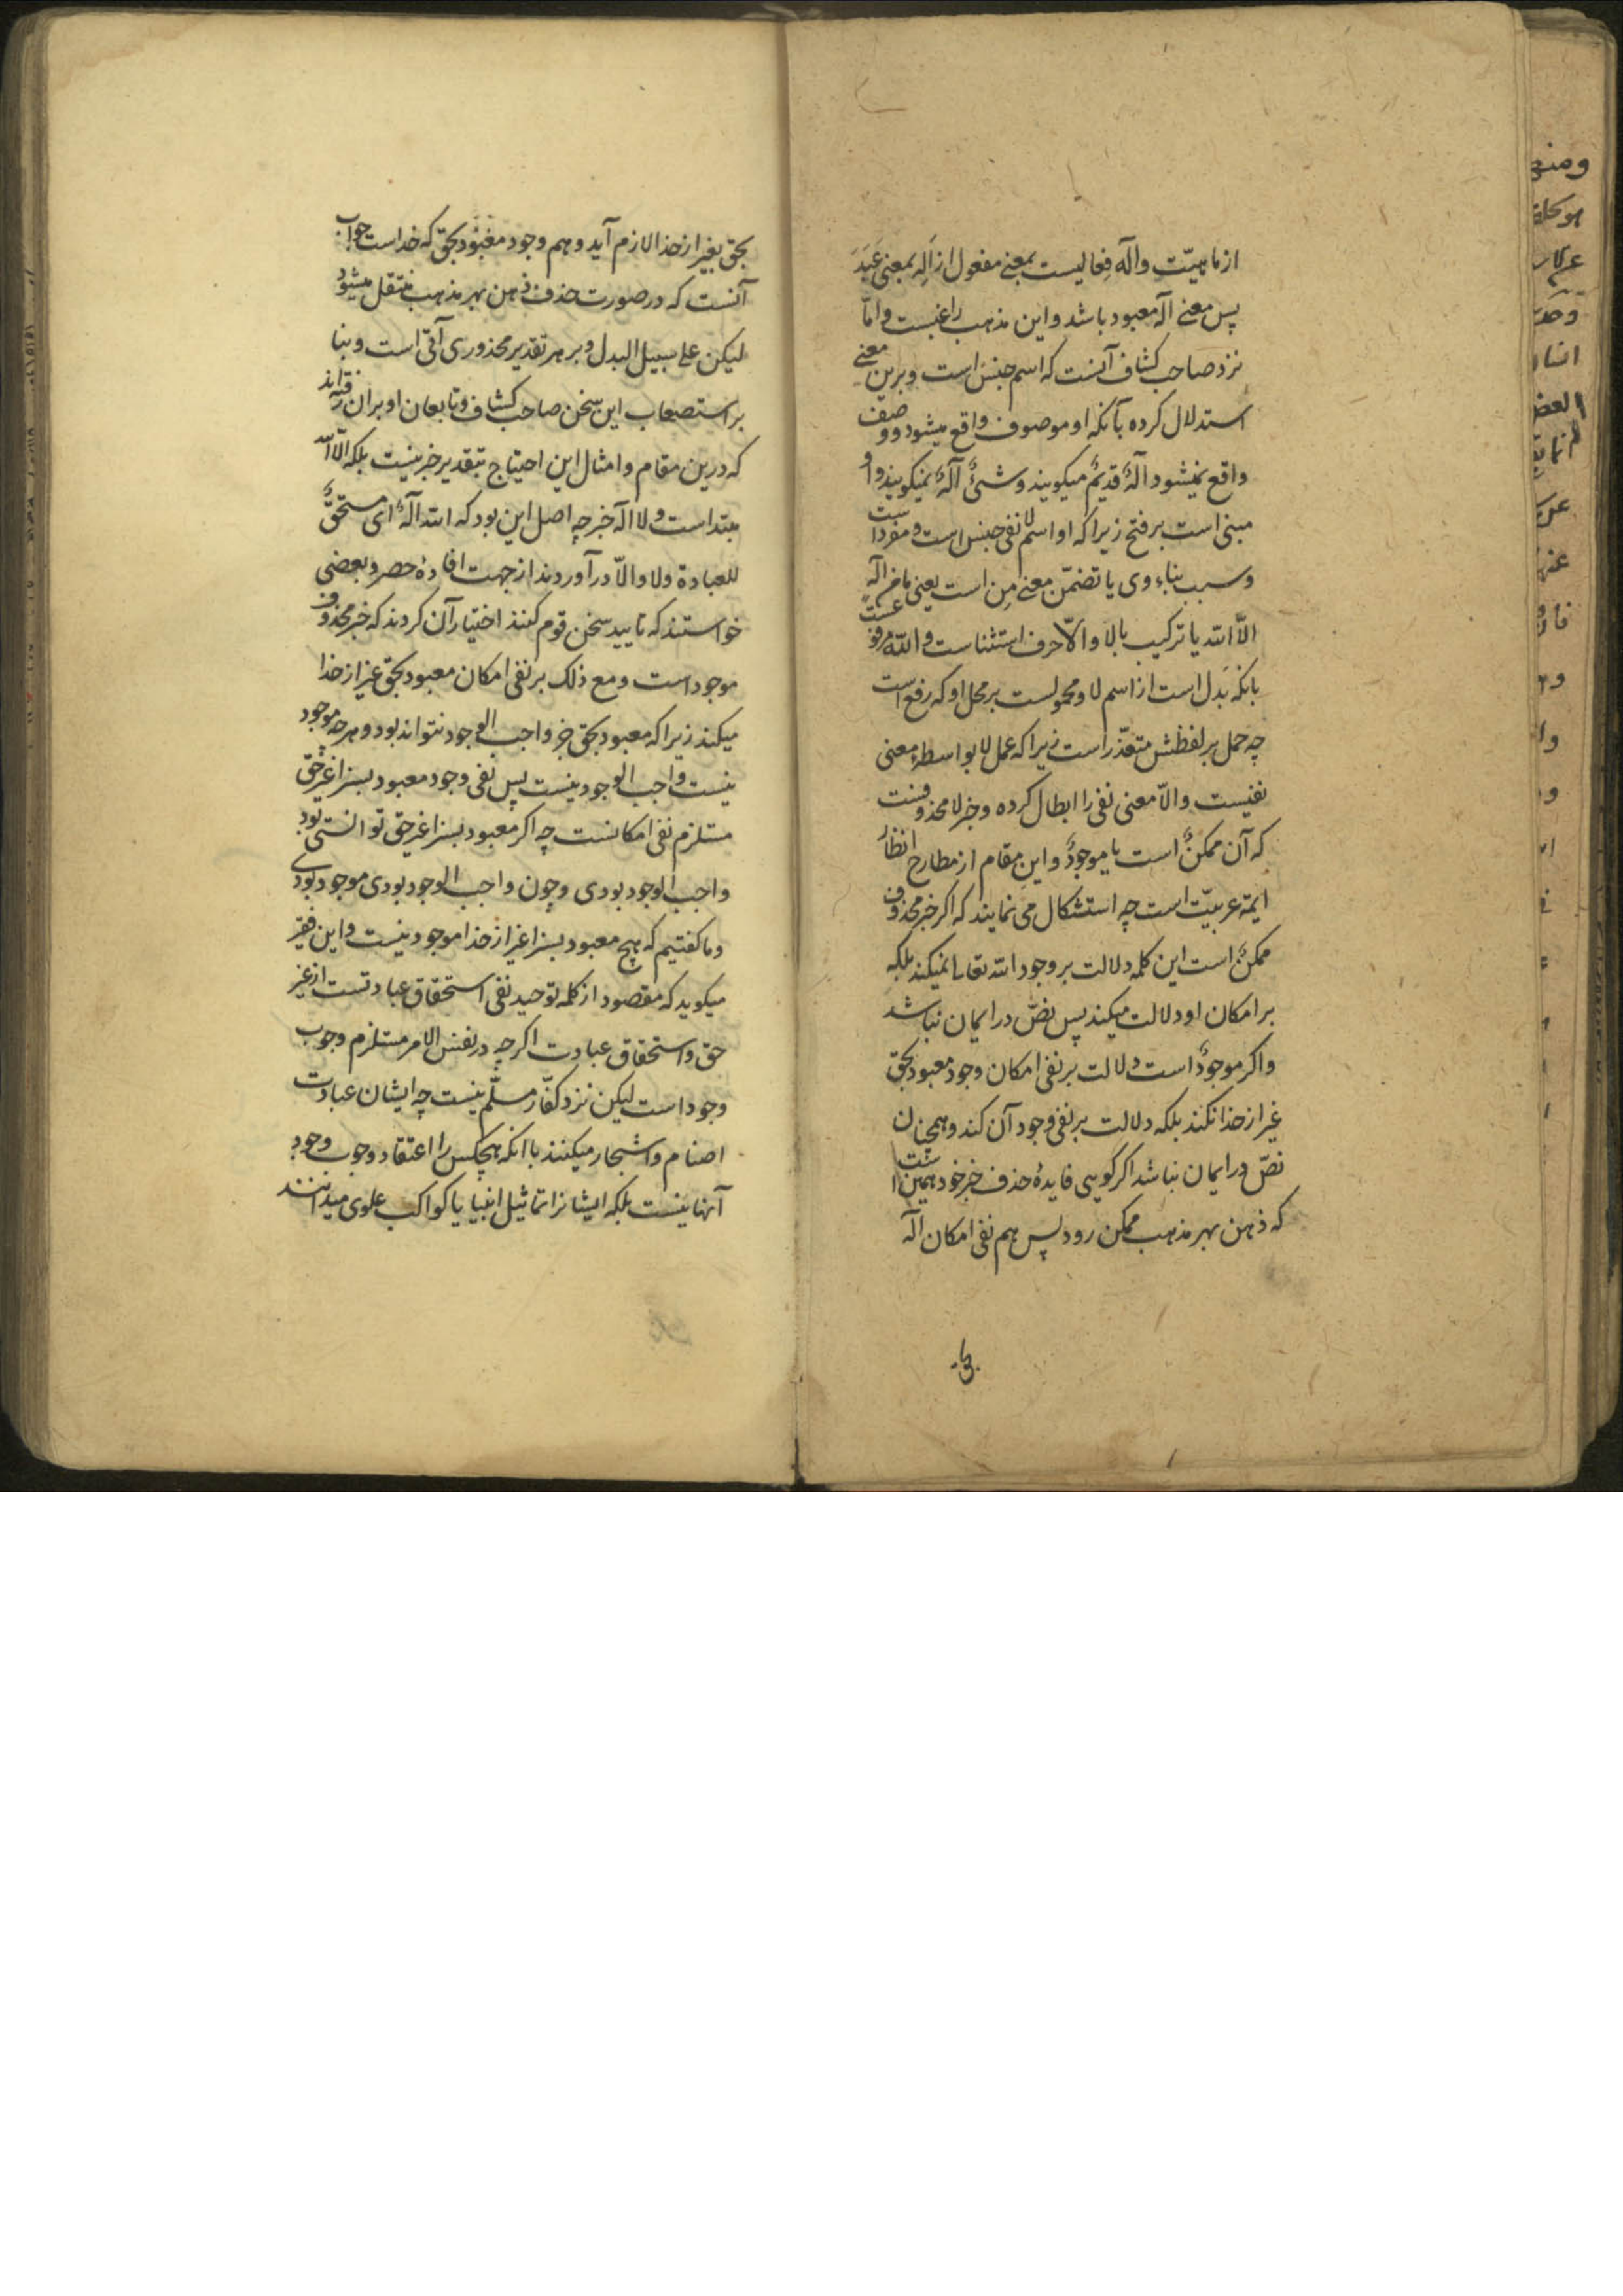 از ماهیّت واله فعالیست بمعنے مفعول از اَلِهَ بمعنی عَبَدَ
پس معنے اله معبود باشد و این مذهب راغبست و امّا
نزد صاحب کشاف آنست که اسم جنس است و برین معنے
استدلال کرده بآنکه او موصوف واقع میشود و وصف
واقع نمیشود الهٌ قدیمٌ میکویند و شئٌ الهٌ نمیکویند و او
مبنی است بر فتح زیرا که او اسم لا نفی جنس است و مفرد است
و سبب بناء وی یا تضمّن معنے مِن است یعنی ما من اله
الاّ الله یا ترکیب بالا و الاّ حرف استثناست و الله مرفوعست
بانکه بَدل است از اسم لا و محمولست بر محل او که رفع است
چه حمل بر لفظش متعذّر است زیرا که عمل لا بواسطۀ معنی
نفیست و الاّ معنی نفی را ابطال کرده و خبر لا محذوفست
که آن ممکنٌ است یا موجودٌ و این مقام از مطارح انظار
ایمۀ عربیّت است چه استشکال می نمایند که اکر خبر محذوف
ممکنٌ است این کلمه دلالت بر وجود الله تعالی نمیکند بلکه
بر امکان او دلالت میکند پس نصّ در ایمان نباشد
و اکر موجودٌ است دلالت بر نفی امکان وجود معبود بحق
غیر از خدا نکند بلکه دلالت بر نفی وجود آن کند و همچنان
نصّ در ایمان نباشد اکر کویی فایدۀ حذف خبر خود همین است
که ذهن بهر مذهب ممکن رود پس هم نفی امکان اله
بحق بغیر از خدا لازم آید و هم وجود معبود بحق که خداست جواب
آنست که در صورت حذف ذهن بهر مذهب منتقل میشود
لیکن علی سبیل البدل و بر هر تقدیر محذوری آتی است و بنا
بر استصعاب این سخن صاحب کشاف و تابعان او بران رفته اند
که درین مقام و امثال این احتیاج بتقدیر خبر نیست بلکه الاّ الله
مبتداست و لا اله خبر چه اصل این بود که الله الهٌ ای مستحقٌّ
للعبادة و لا و الاّ در آوردند از جهت افادۀ حصر و بعضی
خواستند که تایید سخن قوم کنند اختیار آن کردند که خبر محذوف
موجود است و مع ذلک بر نفی امکان معبود بحق غیر از خدا
میکند زیرا که معبود بحق جز واجب الوجود نتواند بود و هر چه موجود
نیست واجب الوجود نیست پس نفی وجود معبود بسزا غیر حق
مستلزم نفی امکانست چه اکر معبود بسزا غیر حق توانستی بود
واجب الوجود بودی و چون واجب الوجود بودی موجود بودی
و ما کفتیم که هیچ معبود بسزا غیر از خدا موجود نیست و این فقیر
میکوید که مقصود از کلمۀ توحید نفی استحقاق عبادتست از غیر
حق و استحقاق عبادت اکر چه در نفس الامر مستلزم وجوب
وجود است لیکن نزد کفّار مسلّم نیست چه ایشان عبادت
اصنام و اشجار میکنند با انکه هیچکس را اعتقاد وجوب وجود
آنها نیست بلکه ایشانرا تماثیل انبیا یا کواکب علوی میدانند